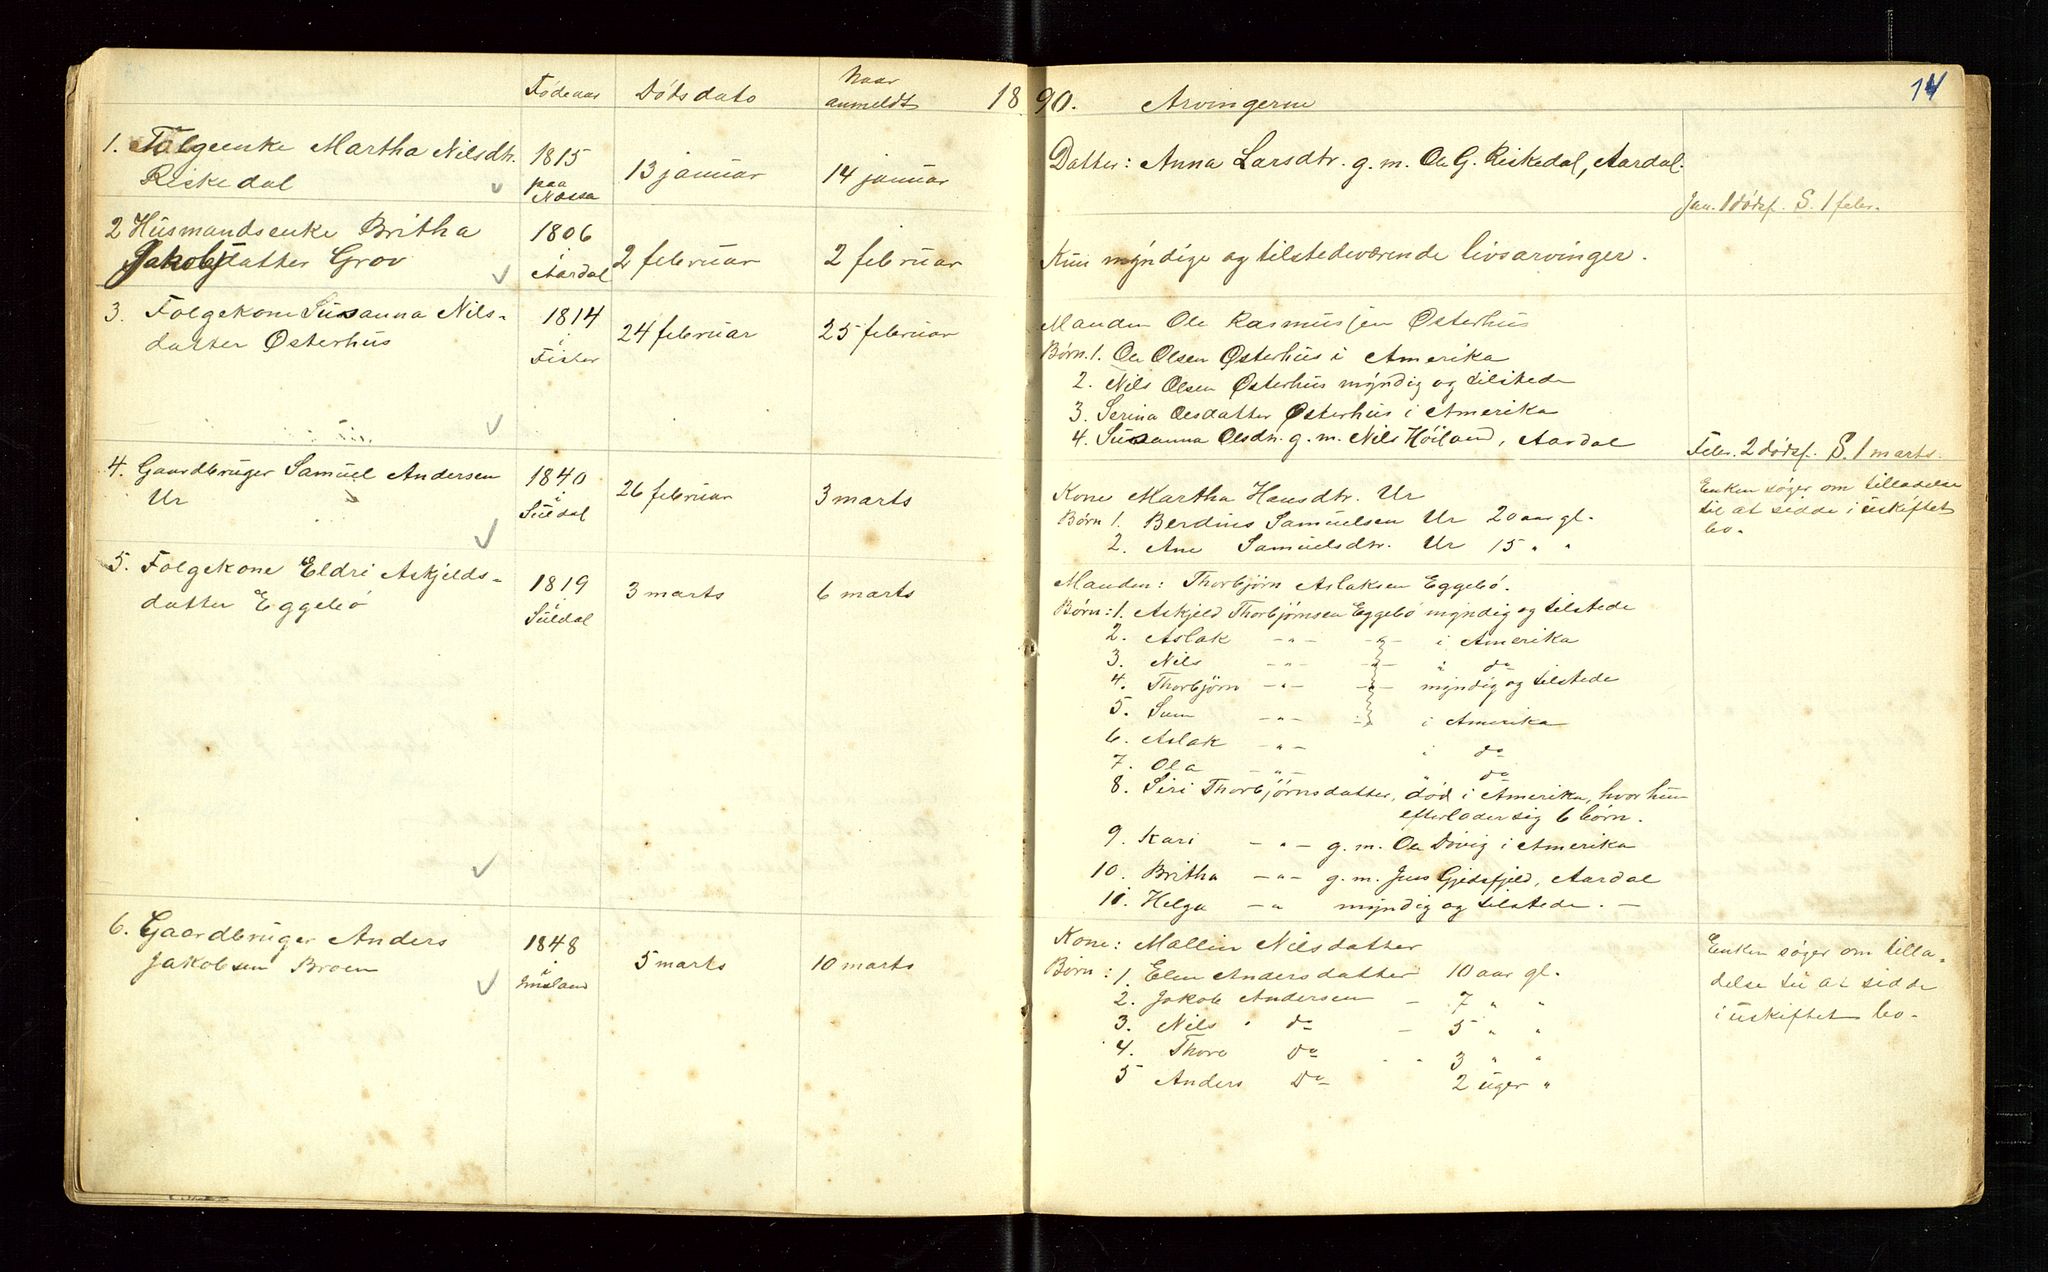 Fødeaar Dødsdato Naar anmeldt 1890. Arvingerne 14
1. Følgeenke Martha Nilsdtr. 1815 13 januar 14 januar Datter: Anna Larsdtr. g. m. Ole G. Riskedal, Aardal.
Riskedal paa Nessa
Jan. 1 dødsf. S. 1 febr.
2 Husmandsenke Britha 1806 2 februar 2 februar Kun myndige og tilstedeværende livsarvinger.
Jakobsdatter Grov i Aardal
3. Følgekone Susanna Nils- 1814 24 februar 25 februar Manden Ole Rasmussen Østerhus
datter Østerhus i Fister
Børn. 1. Ole Olsen Østerhus i Amerika
2. Nils Olsen Østerhus myndig og tilstede
3. Serina Olsdatter Østerhus i Amerika
4. Susanna Olsdtr. g. m. Nils Høiland, Aardal
Febr. 2 dødsf. S. 1 marts.
4. Gaardbruger Samuel Andersen 1840 26 februar 3 marts Kone Martha Hansdtr. Ur
Ur i Suldal
Børn 1. Berdius Samuelsen Ur 20 aar gl.
2. Ane Samuelsdtr. Ur 15 " "
Enken søger om tilladelse
til at sidde i uskiftet
bo.
5. Følgekone Eldri Askjelds- 1819 3 marts 6 marts Manden: Thorbjørn Aslaksen Eggebø.
datter Eggebø i Suldal
Børn: 1. Askjeld Thorbjørnsen Eggebø myndig og tilstede
2. Aslak -"- -"- i Amerika
3. Nils -"- -"- " do
4. Thorbjørn -"- -"- myndig og tilstede
5. -"- -"- i Amerika
6. Aslak -"- i do
7. Ola -"- " do
8. Siri Thorbjørnsdatter, død i Amerika, hvor hun
efterlader sig 6 børn.
9. Kari -"- g. m. Ole Døvig i Amerika
10. Britha -"- g. m. Jens Gjedsfjeld, Aardal
11. Helga -" myndig og tilstede. -
6. Gaardbruger Anders 1848 5 marts 10 marts Kone: Mallin Nilsdatter
Jakobsen Broen i Imsland
Børn: 1. Elen Andersdatter 10 aar gl.
2. Jakob Andersen - 7 " "
3. Nils " do - 5 " "
4. Thore Do 3 " "
5 Anders Do 2 uger "
Enken søger om tilla-
delse til at sidde
i uskiftet bo.